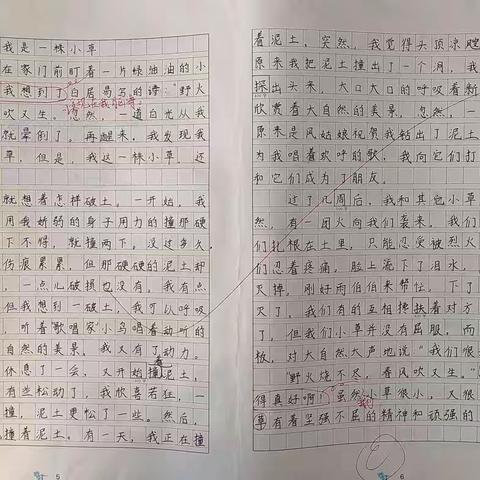 我是一棵小草
在家门前盯着一片绿油油的小
我想到了白居易写的诗："野火
吹又生。"忽然，一道白光从我
就晕倒了。再醒来，我发现我
草，但是，我这一棵小草，还
就想着怎样破土。一开始，我
用我娇弱的身子用力的撞那硬
下不得，就撞两下，没过多久，
伤痕累累，但那硬硬的泥土却
，一点儿破损也没有。我有点
但我想到一破土，我可以呼吸
，听着歌唱家小鸟唱着动听的
自然的美景，我又有了动力。
休息了一会，又开始撞泥土，
有些松动了，我欣喜若狂，一
撞，泥土更松了一些。然后，
撞着泥土。有一天，我正在撞
5
着泥土，突然，我觉得头顶凉飕
原来我把泥土撞出了一个洞，我
探出头来，大口大口的呼吸着新
欣赏着大自然的美景，忽然，一
原来是风姑娘祝贺我钻出了泥土
为我唱着欢呼的歌，我向它们打
和它们成为了朋友。
过了几周后，我和其它小草
然，有一团火向我们袭来，我们
们扎根在土里，只能忍受被烈火
们忍着疼痛，脸上流下了泪水，
灭掉，刚好雨伯伯来帮忙，下了
灭了，我们有的互相搀扶着对方
了，但我们小草并没有屈服，而
板，对大自然大声地说："我们很
"野火烧不尽，春风吹又生。"
得真好啊！虽然小草很小，又很
草有着坚强不屈的精神和顽强的
6